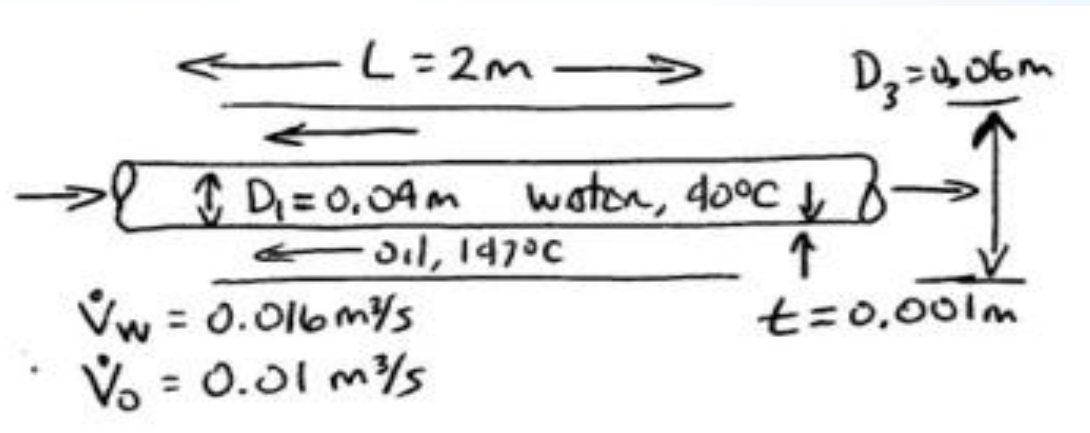 L = 2m
D₃ = 0.06m
D₁ = 0.04m water, 40°C
oil, 147°C
V̇w = 0.016 m³/s
t = 0.001m
V̇o = 0.01 m³/s